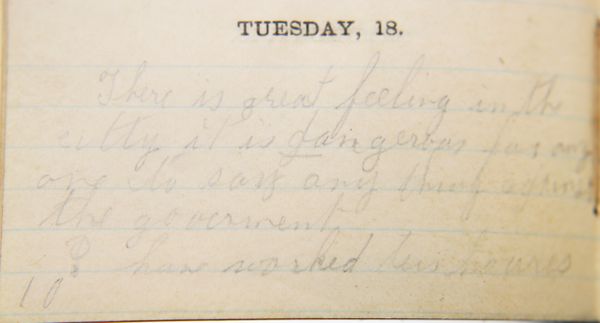 TUESDAY, 18.
There is great feeling in the
citty it is dangerous for any
one to say any thing against
the goverment
I have worked ten houres
10